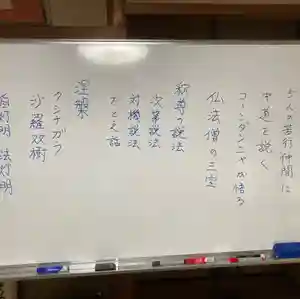 五人の苦行仲間に
中道を説く
コーンダンニャが悟る
仏法僧の三宝
釈尊の説法
次第説法
対機説法
たとえ話
涅槃
クシナガラ
沙羅双樹
自灯明 法灯明